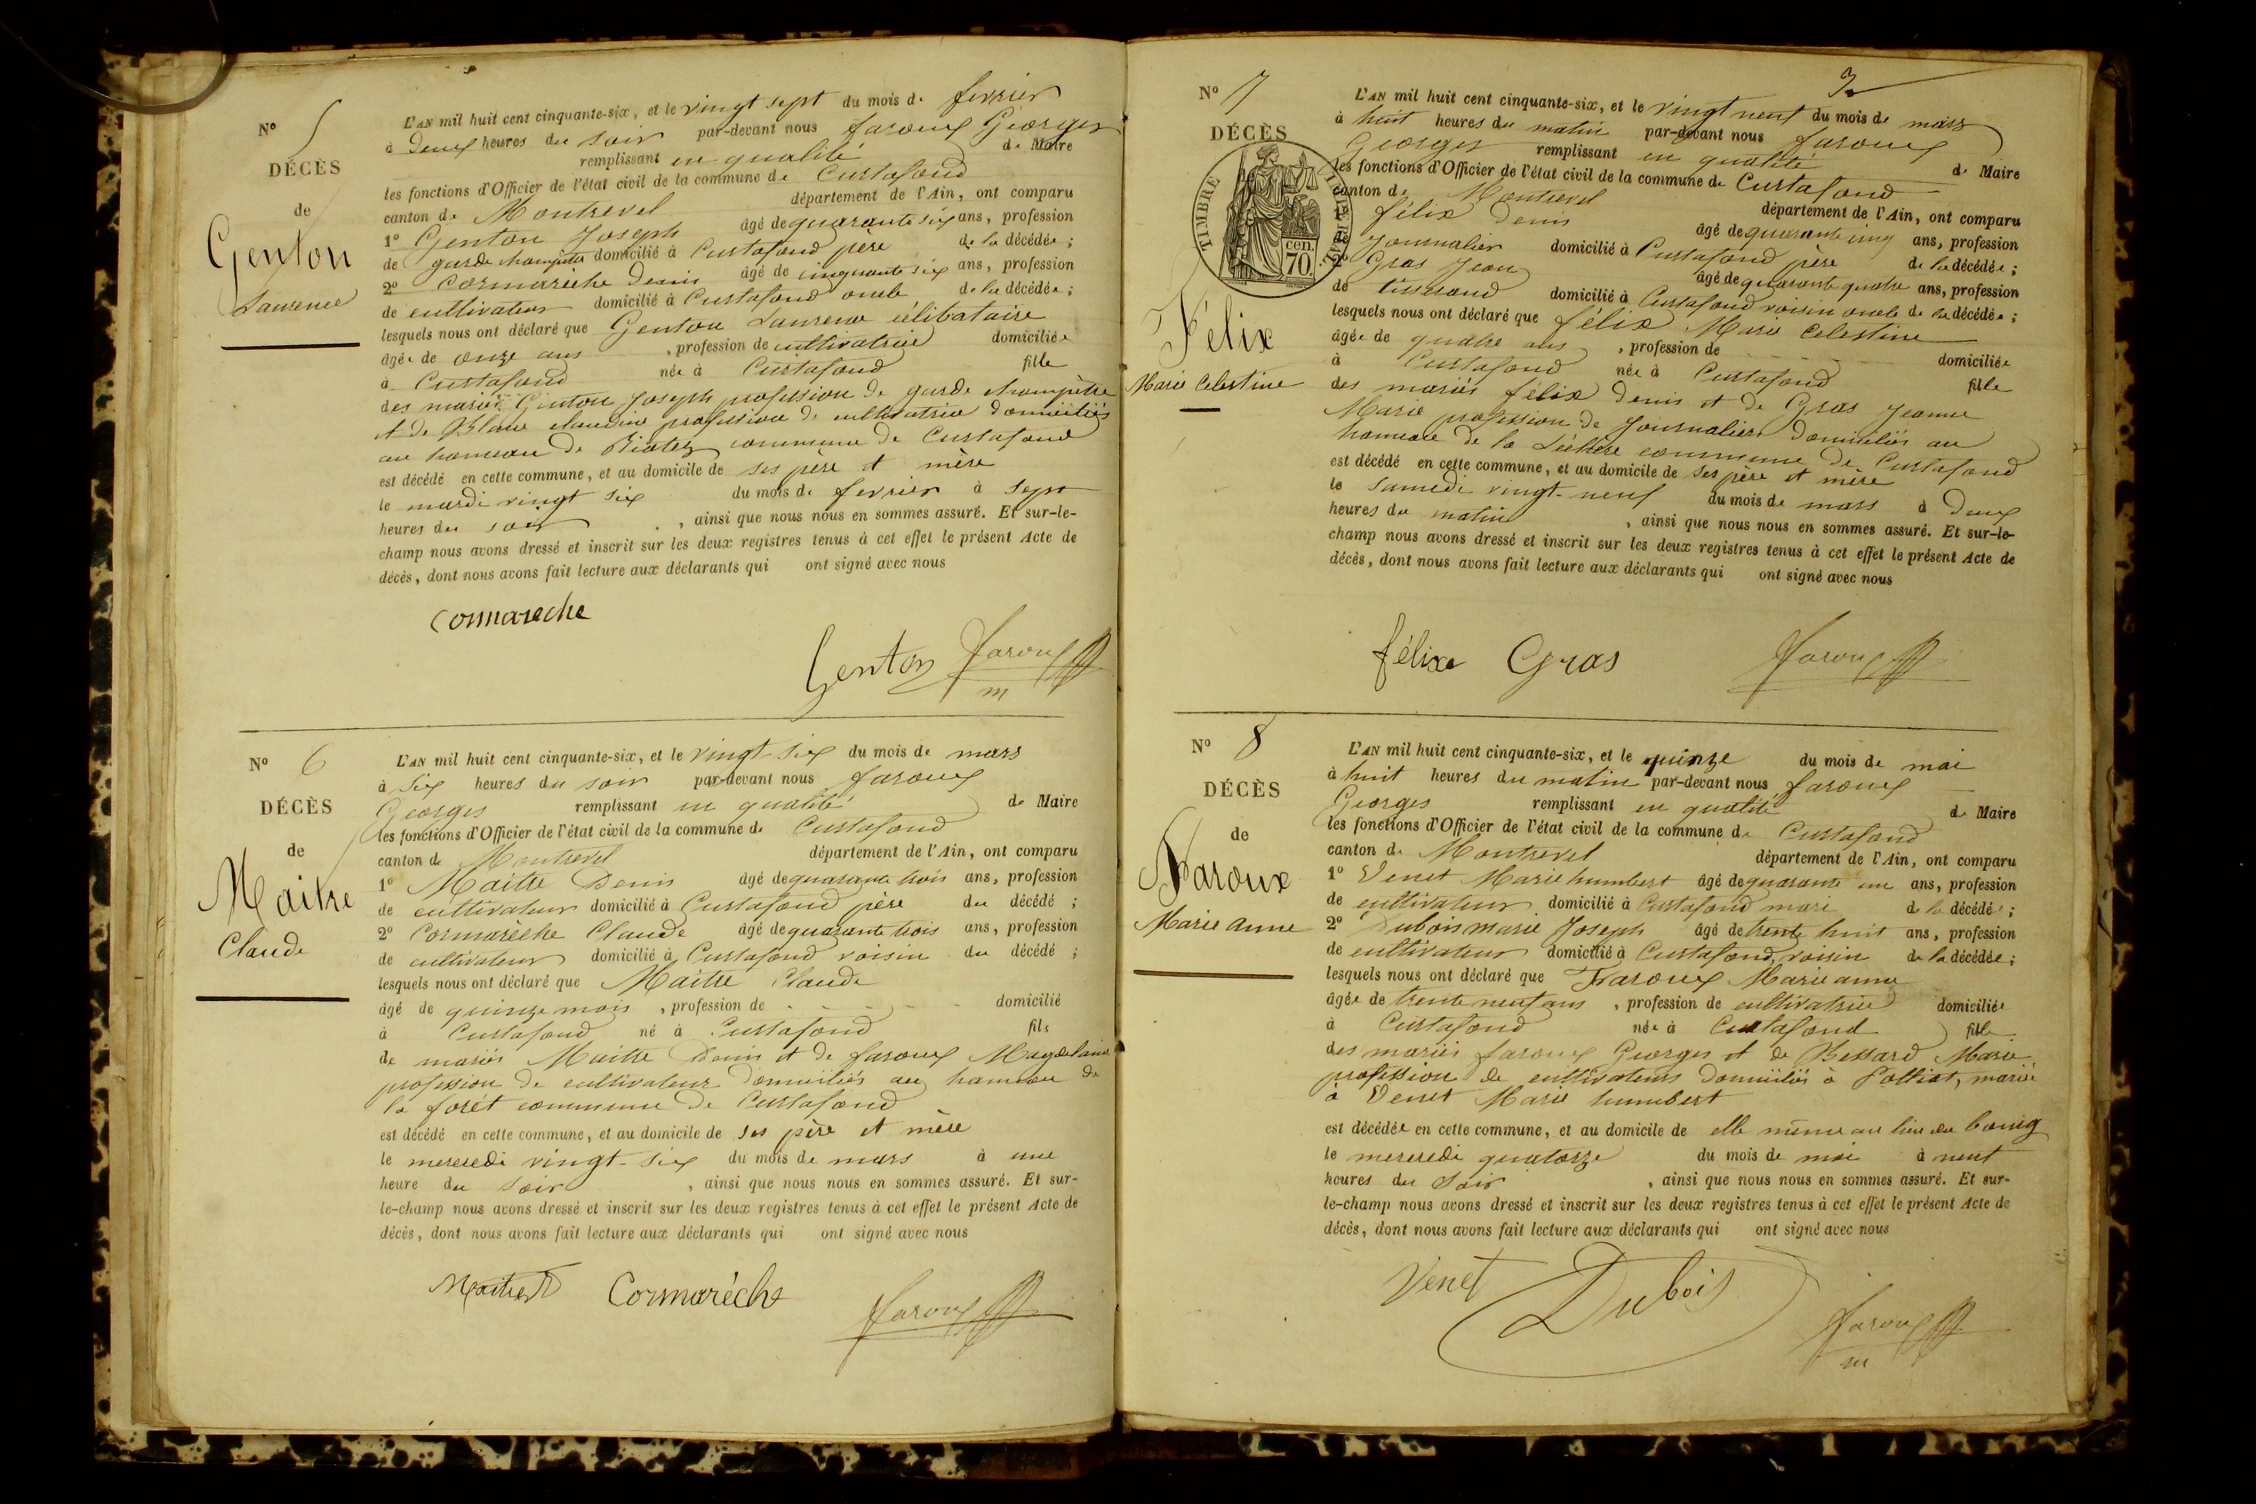 N° 5
DÉCÈS
de
Genton
Laurence
L'AN mil huit cent cinquante-six, et le vingt sept du mois de février
à deux heures du soir par-devant nous faroux Georges
remplissant en qualité de Maire
les fonctions d'Officier de l'état civil de la commune de Curtafond
canton de Montrevel département de l'Ain, ont comparu
1° Genton Joseph âgé de quarante six ans, profession
de garde champêtre domicilié à Curtafond père de la décédée ;
2° Cormarèche Denis âgé de cinquante six ans, profession
de cultivateur domicilié à Curtafond oncle de la décédée ;
lesquels nous ont déclaré que Genton Laurence célibataire
âgée de onze ans , profession de cultivatrice domiciliée
à Curtafond née à Curtafond fille
des mariés Genton Joseph profession de garde champêtre
et de Blanc claudine profession de cultivatrice domiciliés
au hameau de commune de Curtafond
est décédé en cette commune, et au domicile de ses père et mère
le mardi vingt six du mois de février à sept
heures du soir , ainsi que nous nous en sommes assuré. Et sur-le-
champ nous avons dressé et inscrit sur les deux registres tenus à cet effet le présent Acte de
décès, dont nous avons fait lecture aux déclarants qui ont signé avec nous
cormareche
Genton faroux
m
N° 6
DÉCÈS
de
Maitre
Claude
L'AN mil huit cent cinquante-six, et le vingt-six du mois de mars
à six heures du soir par-devant nous faroux
Georges remplissant en qualité de Maire
les fonctions d'Officier de l'état civil de la commune de Curtafond
canton de Montrevel département de l'Ain, ont comparu
1° Maitre Denis âgé de quarante trois ans, profession
de cultivateur domicilié à Curtafond père du décédé ;
2° Cormarèche Claude âgé de quarante trois ans, profession
de cultivateur domicilié à Curtafond voisin du décédé ;
lesquels nous ont déclaré que Maitre Claude
âgé de quinze mois , profession de domicilié
à Curtafond né à Curtafond fils
de mariés Maitre Denis et de faroux Magdelaine
profession de cultivateurs domiciliés au hameau de
la forêt commune de Curtafond
est décédé en cette commune, et au domicile de ses père et mère
le mercredi vingt-six du mois de mars à une
heure du soir , ainsi que nous nous en sommes assuré. Et sur-
le-champ nous avons dressé et inscrit sur les deux registres tenus à cet effet le présent Acte de
décès, dont nous avons fait lecture aux déclarants qui ont signé avec nous
Maitre Cormarèche faroux
3
N° 7
DÉCÈS
TIMBRE IMPÉRIAL
cen.
70.
Félix
Marie Celestine
L'AN mil huit cent cinquante-six, et le vingt neuf du mois de mars
à huit heures du matin par-devant nous faroux
Georges remplissant en qualité de Maire
les fonctions d'Officier de l'état civil de la commune de Curtafond
canton de Montrevel département de l'Ain, ont comparu
félix Denis âgé de quarante cinq ans, profession
de Journalier domicilié à Curtafond père de la décédée ;
2° Gras Jean âgé de quarante quatre ans, profession
de tisserand domicilié à Curtafond voisin oncle de la décédée ;
lesquels nous ont déclaré que félix Marie Celestine
âgée de quatre ans , profession de domiciliée
à Curtafond née à Curtafond fille
des mariés félix Denis et de Gras Jeanne
Marie profession de Journaliers domiciliés au
hameau de la commune de Curtafond
est décédé en cette commune, et au domicile de ses père et mère
le samedi vingt-neuf du mois de mars à deux
heures du matin , ainsi que nous nous en sommes assuré. Et sur-le-
champ nous avons dressé et inscrit sur les deux registres tenus à cet effet le présent Acte de
décès, dont nous avons fait lecture aux déclarants qui ont signé avec nous
félix Gras faroux
N° 8
DÉCÈS
de
Faroux
Marie anne
L'AN mil huit cent cinquante-six, et le quinze du mois de mai
à huit heures du matin par-devant nous faroux
Georges remplissant en qualité de Maire
les fonctions d'Officier de l'état civil de la commune de Curtafond
canton de Montrevel département de l'Ain, ont comparu
1° Venet Marie humbert âgé de quarante un ans, profession
de cultivateur domicilié à Curtafond mari de la décédée ;
2° Dubois marie Joseph âgé de trente huit ans, profession
de cultivateur domicilié à Curtafond, voisin de la décédée ;
lesquels nous ont déclaré que Faroux Marie anne
âgée de trente neuf ans , profession de cultivatrice domiciliée
à Curtafond née à Curtafond fille
des mariés faroux Georges et de Bessard Marie
profession de cultivateurs domiciliés à Polliat, mariée
à Venet Marie humbert
est décédée en cette commune, et au domicile de elle même au lieu du bourg
le mercredi quatorze du mois de mai à neuf
heures du soir , ainsi que nous nous en sommes assuré. Et sur-
le-champ nous avons dressé et inscrit sur les deux registres tenus à cet effet le présent Acte de
décès, dont nous avons fait lecture aux déclarants qui ont signé avec nous
Venet Dubois faroux
m